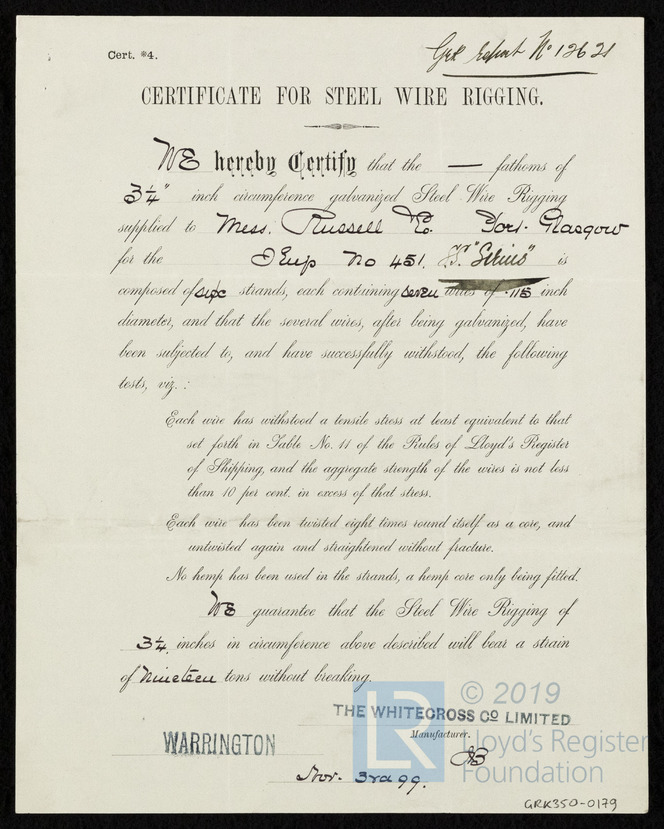 Cert. *4.
Grk report No 12621
CERTIFICATE FOR STEEL WIRE RIGGING.
WE hereby Certify that the — fathoms of
3¼" inch circumference galvanized Steel Wire Rigging
supplied to Mess. Russell & Co. Port-Glasgow
for the Ship No 451. "Sirius" is
composed of six strands, each containing seven wires of .115 inch
diameter, and that the several wires, after being galvanized, have
been subjected to, and have successfully withstood, the following
tests, viz.:
Each wire has withstood a tensile stress at least equivalent to that
set forth in Table No. 11 of the Rules of Lloyd's Register
of Shipping, and the aggregate strength of the wires is not less
than 10 per cent. in excess of that stress.
Each wire has been twisted eight times round itself as a core, and
untwisted again and straightened without fracture.
No hemp has been used in the strands, a hemp core only being fitted.
WE guarantee that the Steel Wire Rigging of
3¼ inches in circumference above described will bear a strain
of Nineteen tons without breaking.
© 2019
THE WHITECROSS CO LIMITED
Manufacturer.
LR
Lloyd's Register
Foundation
WARRINGTON
Nov. 3rd 99.
GRK350-0179